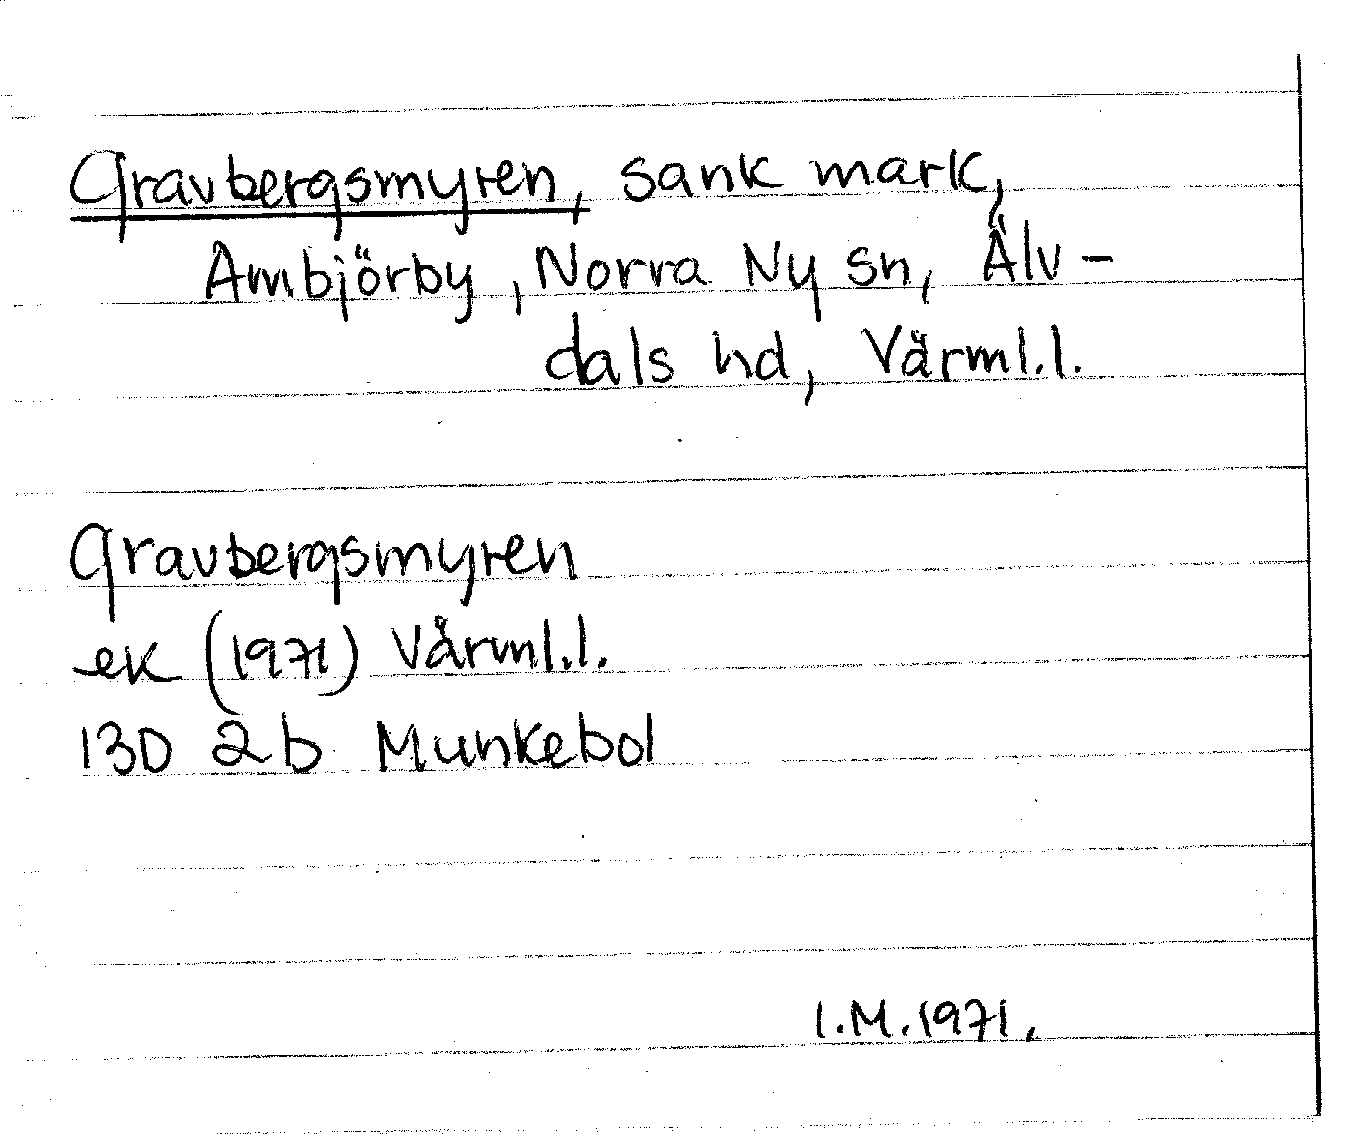 Gravbergsmyren, sank mark,
Ambjörby, Norra Ny sn, Älv-
dals hd, Värml.l.
Gravbergsmyren
ek (1971) Värml.l.
13D 2b Munkebol
I.M.1971.